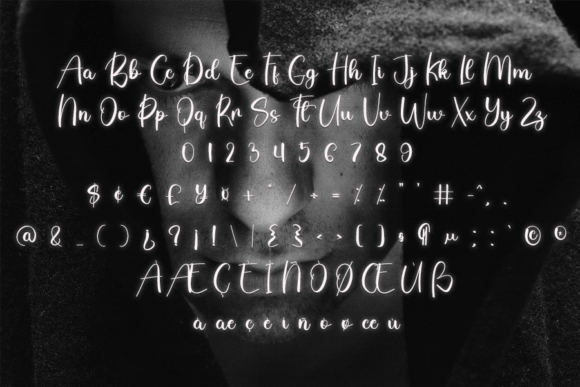 Aa Bb Cc Dd Ee Ff Gg Hh Ii Jj Kk Ll Mm
Nn Oo Pp Qq Rr Ss Tt Uu Vv Ww Xx Yy Zz
0 1 2 3 4 5 6 7 8 9
$ ¢ € £ ¥ ¤ + ° / ÷ = % " ' # - ^ , .
@ & _ ( ) ¿ ? ¡ ! \ | { } < > [ ] § ¶ µ ; : ` © ®
À Æ Ç È Ì Ñ Ò Ø Œ Ù ß
à æ ç è ì ñ ò ø œ ù